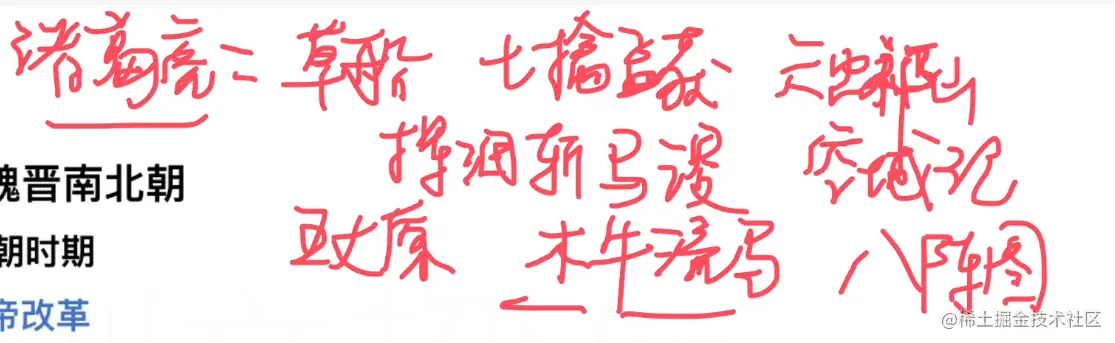 诸葛亮：草船 七擒孟获 六出祁山
挥泪斩马谡 空城记
魏晋南北朝
五丈原 木牛流马 八阵图
朝时期
帝改革
@稀土掘金技术社区